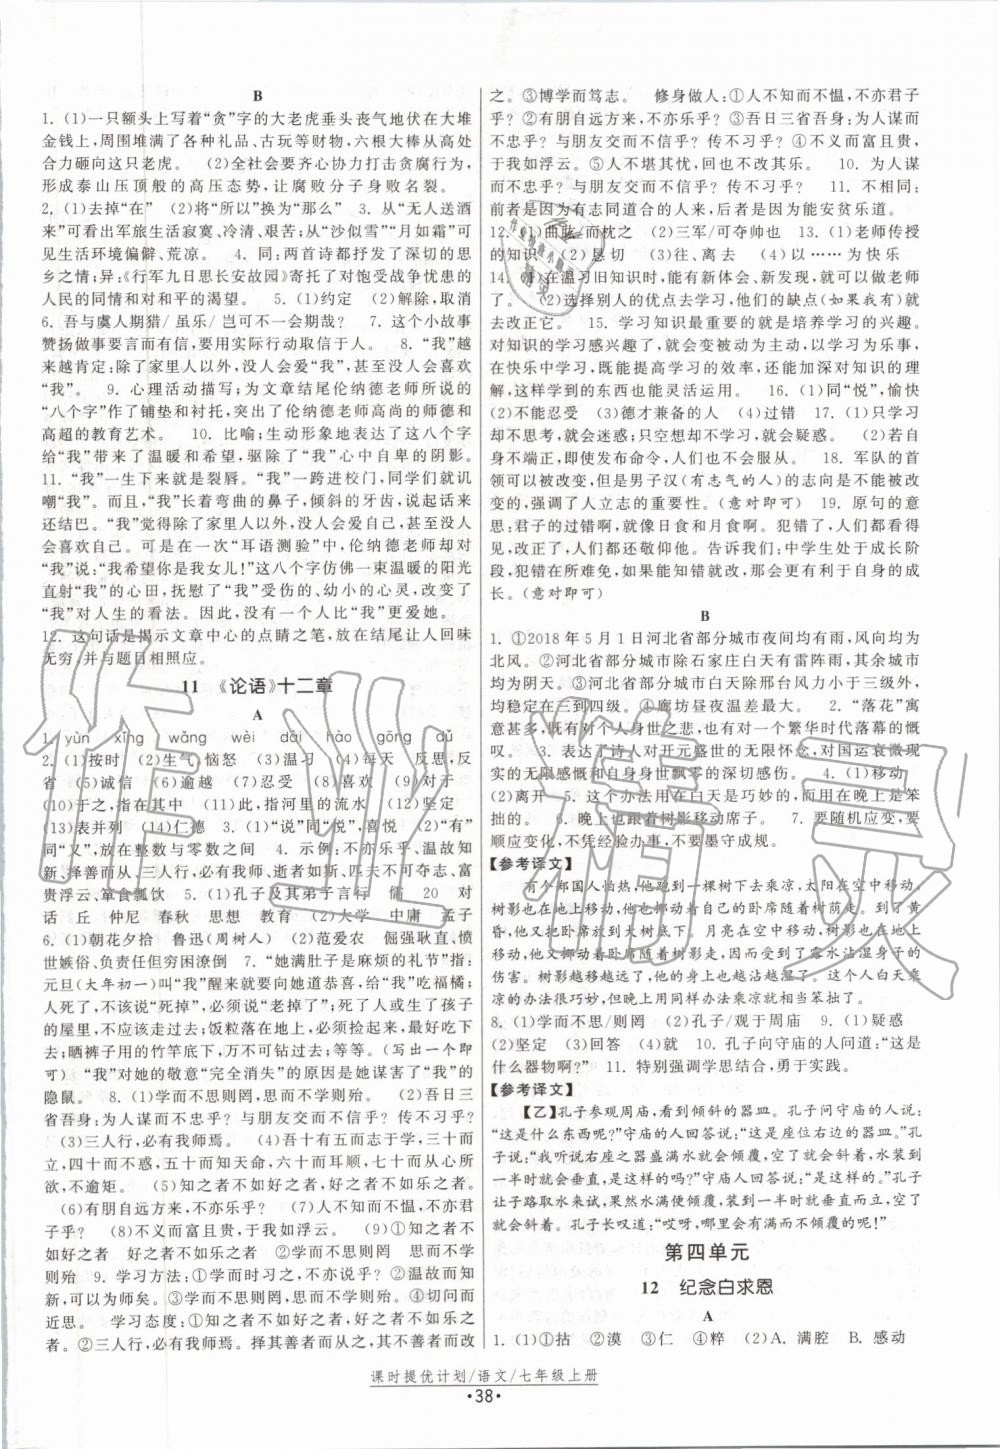 B
1. (1)一只额头上写着“贪”字的大老虎垂头丧气地伏在大堆
金钱上,周围堆满了各种礼品、古玩等财物,六根大棒从高处
合力砸向这只老虎。 (2)全社会要齐心协力打击贪腐行为,
形成泰山压顶般的高压态势,让腐败分子身败名裂。
2. (1)去掉“在” (2)将“所以”换为“那么” 3. 从“无人送酒
来”可看出军旅生活寂寞、冷清、艰苦;从“沙似雪”“月如霜”可
见生活环境偏僻、荒凉。 4. 同:两首诗都抒发了深切的思
乡之情;异:《行军九日思长安故园》寄托了对饱受战争忧患的
人民的同情和对和平的渴望。 5. (1)约定 (2)解除,取消
6. 吾与虞人期猎/ 虽乐/ 岂可不一会期哉? 7. 这个小故事
赞扬做事要言而有信,要用实际行动取信于人。 8. “我”越
来越肯定:除了家里人以外,没人会喜欢“我”,甚至没人会喜
欢“我”。 9. 心理活动描写;为文章结尾伦纳德老师所说的
“八个字”作了铺垫和衬托,突出了伦纳德老师高尚的师德和
高超的教育艺术。 10. 比喻;生动形象地表达了这八个字
给“我”带来了温暖和希望,驱除了“我”心中自卑的阴影。
11. “我”一生下来就是裂唇。“我”一跨进校门,同学们就讥
嘲“我”。而且,“我”长着弯曲的鼻子,倾斜的牙齿,说起话来
还结巴。“我”觉得除了家里人以外,没人会爱自己,甚至没人
会喜欢自己。可是在一次“耳语测验”中,伦纳德老师却对
“我”说:“我希望你是我女儿!”这八个字仿佛一束温暖的阳光
直射“我”的心田,抚慰了“我”受伤的、幼小的心灵,改变了
“我”对人生的看法。因此,没有一个人比“我”更爱她。
12. 这句话是揭示文章中心的点睛之笔,放在结尾让人回味
无穷,并与题目相照应。
11 《论语》十二章
A
1. yùn xǐng wǎng wèi dài hào gōng dǔ
2. (1)按时 (2)生气,恼怒 (3)温习 (4)每天 反思,反
省 (5)诚信 (6)逾越 (7)忍受 (8)喜欢 (9)对于
(10)于之,指在其中 (11)代词,此,指河里的流水 (12)坚定
(13)表并列 (14)仁德 3. (1)“说”同“悦”,喜悦 (2)“有”
同“又”,放在整数与零数之间 4. 示例:不亦乐乎、温故知
新、择善而从、三人行,必有我师、逝者如斯、匹夫不可夺志、富
贵浮云、箪食瓢饮 5. (1)孔子及其弟子言行 儒 20 对
话 丘 仲尼 春秋 思想 教育 (2)大学 中庸 孟子
6. (1)朝花夕拾 鲁迅(周树人) (2)范爱农 倔强耿直、愤
世嫉俗、负责任但穷困潦倒 7. “她满肚子是麻烦的礼节”指:
元旦(大年初一)叫“我”醒来就要说向她道恭喜,给“我”吃福橘;
人死了,不该说“死掉”,必须说“老掉了”;死了人或生了孩子
的屋里,不应该走进去;饭粒落在地上,必须捡起来,最好是吃下
去;晒裤子用的竹竿底下,万不可钻过去;等等。(写出一个即
可) “我”对她的敬意“完全消失”的原因是她谋害了“我”的
隐鼠。 8. (1)学而不思则罔,思而不学则殆。 (2)吾日三
省吾身:为人谋而不忠乎?与朋友交而不信乎?传不习乎?
(3)三人行,必有我师焉。 (4)吾十有五而志于学,三十而
立,四十而不惑,五十而知天命,六十而耳顺,七十而从心所
欲,不逾矩。 (5)知之者不如好之者,好之者不如乐之者。
(6)有朋自远方来,不亦乐乎! (7)人不知而不愠,不亦君
子乎? (8)不义而富且贵,于我如浮云。 (9)①知之者不
如好之者 好之者不如乐之者 ②学而不思则罔 思而不学
则殆 9. 学习方法:①学而时习之,不亦说乎?②温故而知
新,可以为师矣。③学而不思则罔,思而不学则殆。④切问而
近思。 学习态度:①知之者不如好之者,好之者不如乐之者。
②三人行,必有我师焉。择其善者而从之,其不善者而改
之。③博学而笃志。 修身做人:①人不知而不愠,不亦君子
乎?②有朋自远方来,不亦乐乎?③吾日三省吾身:为人谋而
不忠乎?与朋友交而不信乎?传不习乎?④不义而富且贵,
于我如浮云。⑤人不堪其忧,回也不改其乐。 10. 为人谋
而不忠乎?与朋友交而不信乎?传不习乎? 11. 不相同:
前者是应有志同道合的人来,后者是能安贫乐道。
12. (1)曲肱/而枕之 (2)三军/可夺帅也 13. (1)老师传授
的知识 (2)恳切 (3)離 (4)以……为快乐
14. (1)在温习旧知识时,能有新体会、新发现,就可以做老师
了。 (2)选择别人的优点去学习,他们的缺点(如果我有)就
去改正它。 15. 学习知识最重要的就是培养学习的兴趣。
对知识的学习感兴趣了,就会变被动为主动,以学习为乐事,
在快乐中学习,既能提高学习的效率,还能加深对知识的理
解,这样学到的东西也能灵活运用。 16. (1)同“悦”,愉快
(2)不能忍受 (3)德才兼备的人 (4)过错 17. (1)只学习
却不思考,就会迷惑;只空想却不学习,就会疑惑。 (2)若自
身不端正,即使发布命令,人们也不会服从。 18. 军队的首
领可以被改变,但是男子汉(有志气的人)的志向是不能被改
变的,强调了人立志的重要性。(意对即可) 19. 原句的意
思:君子的过错啊,就像日食和月食啊。犯错了,人们都能看
到,改正了,人们都还敬仰他。告诉我们:中学生处于成长阶
段,犯错在所难免,如果知错就改,那么更有利于自身的成
长。(意对即可)
B
1. ①2018年5月1日河北省部分城市夜间均有雨,风向均为
北风。②河北省部分城市除石家庄白天有雷阵雨,其余城市
白天均为多云。③河北省部分城市白天除邢台风力小于三级外,
均稳定在三到四级。④廊坊昼夜温差最大。 2. “落花”寓
意甚多,既有对个人身世之悲,也有对一个繁华时代落幕的慨
叹。 3. 表达了诗人对开元盛世的无限怀念、对国运衰微现
实的无限感慨和自身身世飘零的深切感伤。 4. (1)移动
(2)离开 5. 这个办法用在白天是巧妙的,而在晚上是笨
拙的。 6. 晚上也跟着树影移动席子。 7. 要随机应变,要
顺应变化,不凭经验办事,不要墨守成规。
【参考译文】
有个郑国人怕热,他跑到一棵树下去乘凉,太阳在空中移动,
树影也在地上移动,他也随着树影挪动自己的卧席。到了黄
昏,他又把卧席放到大树底下。月亮在空中移动,
树影也在地上移动,他又随着树影挪动自己的卧席,而受到了露水沾湿身子的
伤害。树影越移越远了,他的身上也越沾越湿了。这个人白天乘
凉的办法很巧妙,但晚上用同样的办法乘凉就相当笨拙了。
8. (1)学而不思/则罔 (2)孔子/观于周庙 9. (1)疑惑
(2)坚定 (3)回答 (4)就 10. 孔子向守庙的人问道:“这是
什么器物啊?” 11. 特别强调学思结合,勇于实践。
【参考译文】
【乙】孔子参观周庙,看到倾斜的器皿。孔子问守庙的人说:
“这是什么东西呢?”守庙的人回答说:“这是座位右边的器皿。”孔子
说:“我听说右座之器盛满水就会倾覆,空了就会斜着,水装到
一半时就会垂直,是这样的吗?”守庙人回答说:“是这样的。”孔子
让子路取水来试,果然水满便倾覆,装到一半时就垂直,空了
就会斜着。孔子长叹道:“哎呀,哪里会有满而不倾覆的呢!”
第四单元
12 纪念白求恩
A
1. (1)①拈 ②漠 ③仁 ④粹 (2)A. 满腔 B. 感动
课时提优计划/语文/七年级上册
·38·
作业精灵